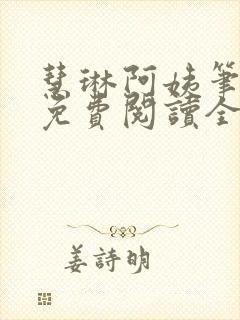 慧琳阿姨筆
免費閱讀全
姜詩明